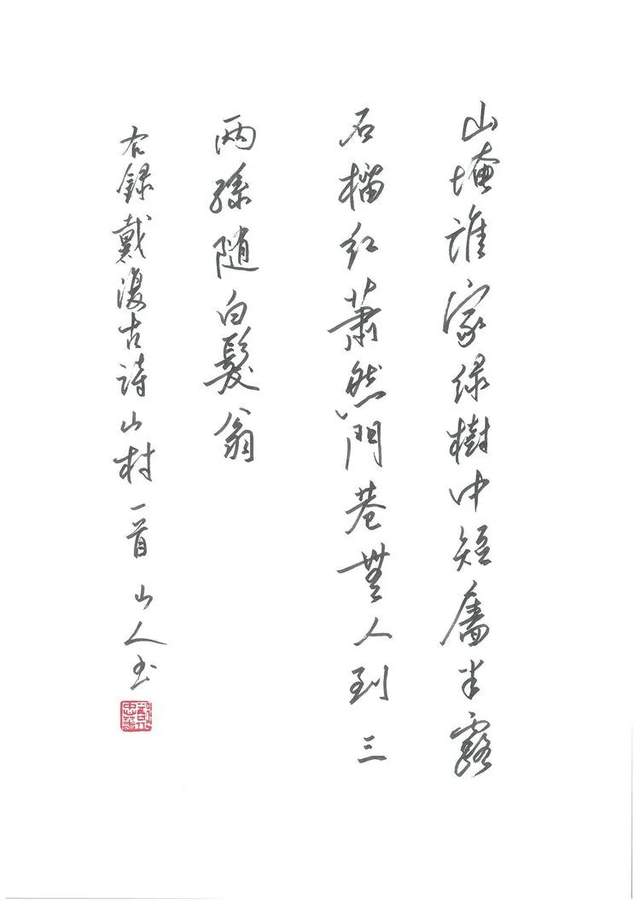 山埯誰家绿樹中短牆半露
石榴红蕭然門巷無人到三
两孫随白髮翁
右録戴復古詩山村一首 山人书